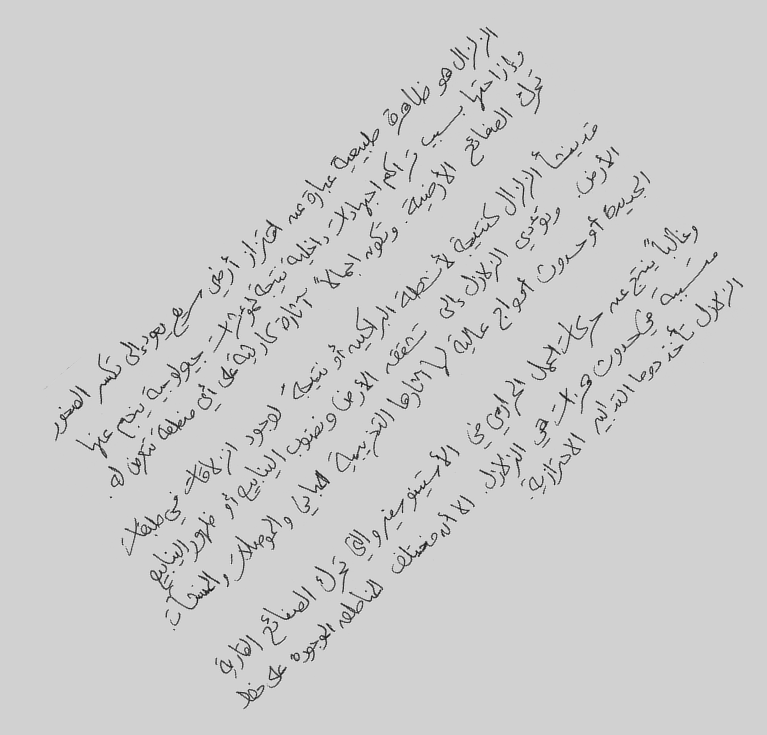 الزلزال هو ظاهرة طبيعية عبارة عن اهتزاز أرضي سريع يعود إلى تكسر الصخور
وإزاحتها بسبب تراكم اجهادات داخلية نتيجة لمؤثرات جيولوجية ينجم عنها
تحرك الصفائح الأرضية. وتكون اجمالاً آثاره كارثية على أي منطقة تتعرض له.
قد ينشأ الزلزال كنتيجة لأنشطة البراكين أو نتيجة لوجود انزلاقات في طبقات
الأرض. وتؤدي الزلازل إلى تشقق الأرض ونضوب الينابيع أو ظهور الينابيع
الجديدة أو حدوث أمواج عالية لها آثارها التخريبية للمباني والموصلات والمنشآت.
وغالباً ينتج عن حركات الحمل الحراري في الأستينوسفير والتي تحرك الصفائح القارية
مسببة في حدوث هزات هي الزلازل. الا أنه مختلف المناطق الموجودة على خط
الزلازل تأخذ دوما التدابير الاحترازية.